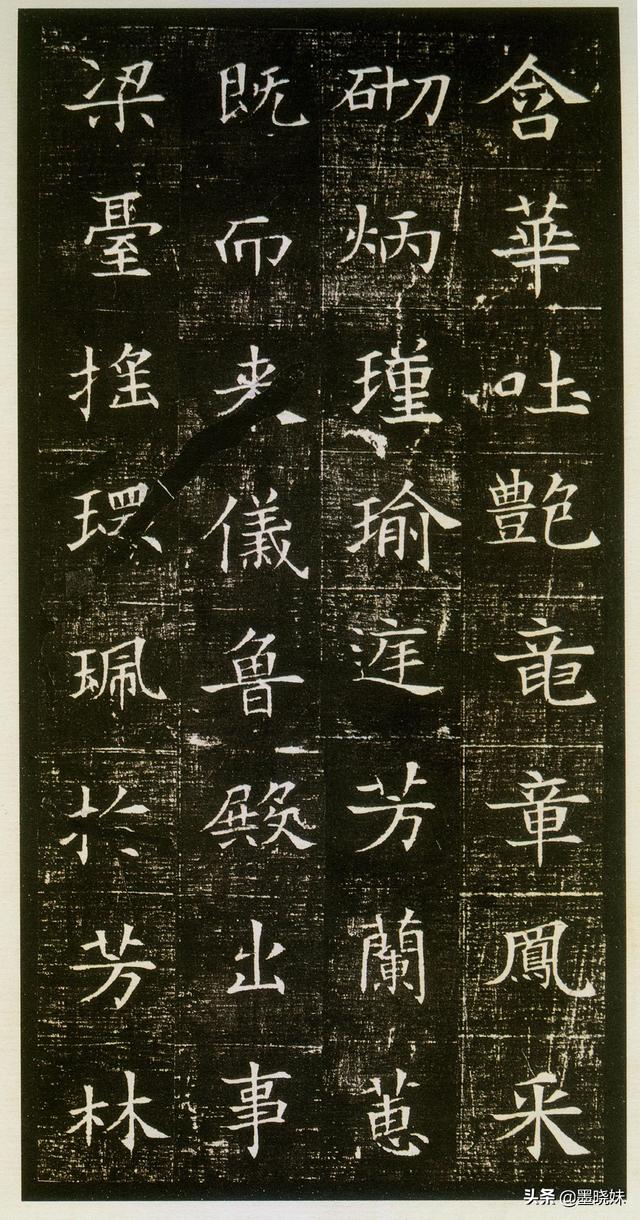 含華吐艷竜章鳳采
砌炳瑾瑜庭芳蘭蕙
既而来儀魯殿出事
梁臺搖環珮於芳林
头条 @墨晓妹